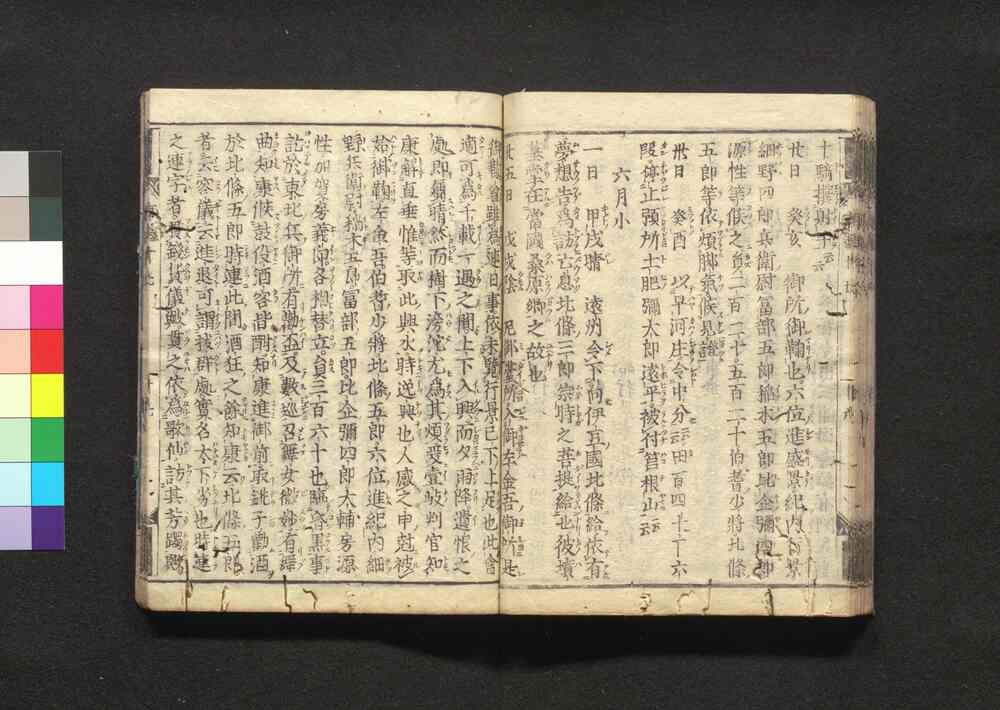 廿日 癸亥 御所御鞠也六位進盛景紀内行景
細野四郎兵衛尉冨部五郎 比企彌四郎
源性等候之 二百二十五百二十伯耆少將北條
五郎等依煩脚氣候見證
卅日 癸酉 以早河庄令中分云田百四十丁六
段停止預所土肥彌太郎遠平被付筥根山云
六月小
一日 甲戌晴 遠州令下向伊豆國北條給依有
夢想告爲訪古息北條三郎宗時之菩提給也彼墳
墓堂在當國桑原郷之故也
廿五日 戊戌陰 尼御臺所入御左金吾御所是
御鞠會雖爲連日事依未覽行景已下上足也此會
適可爲千載一遇之間上下入興而夕雨降遺恨之
處即爾晴然而樹下滂沱尤爲其煩爰壹岐判官知
康解直垂帷等取此興水時逸興也人感之申尅被
始御鞠左金吾伯耆少將北條五郎六位進紀内細
野兵衛尉稲木五郎冨部五郎比企彌四郎大輔房源
性加賀房義印各相替立員三百六十也臨昏黒事
訖於東北御所有勸盃及數巡召舞女微妙有
曲知康候鼓役酒客皆酣知康進御前取銚子勸酒
於北條五郎時連此間酒狂之餘知康云北條五郎
者云容儀云進退可謂抜群處實名太下劣也時連
之連字者 儀歟貫之依爲歌仙訪其芳躅歟